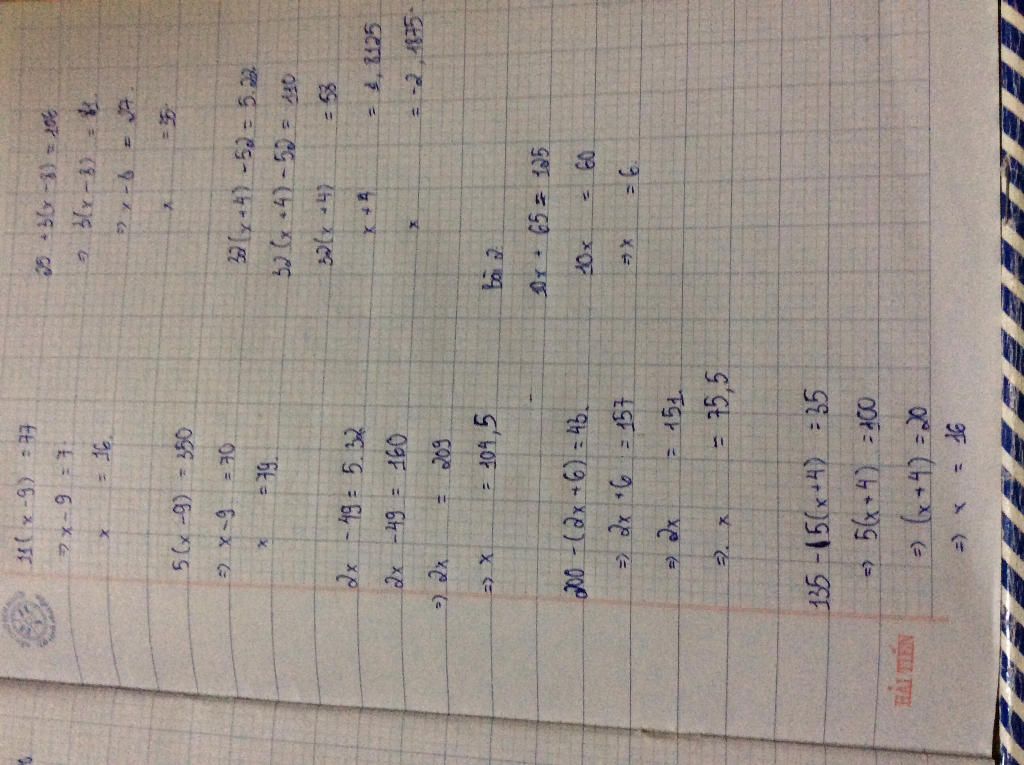 11(x-9) = 77
=> x-9 = 7
x = 16.
5(x-9) = 350
=> x-9 = 70
x = 79.
2x - 49 = 5.32
2x - 49 = 160
=> 2x = 209
=> x = 104,5
200 - (2x+6) = 43.
=> 2x+6 = 157
=> 2x = 151.
=> x = 75,5
135 - 5(x+4) = 35
=> 5(x+4) = 100
=> (x+4) = 20
=> x = 16
25 + 3(x-8) = 106
=> 3(x-8) = 81.
=> x-8 = 27.
x = 35.
32(x+4) - 52 = 5.22
32(x+4) - 52 = 110
32(x+4) = 58
x+4 = 1,8125
x = -2,1875.
Bài 2.
10x + 65 = 125
10x = 60
=> x = 6.
HẢI TIẾN